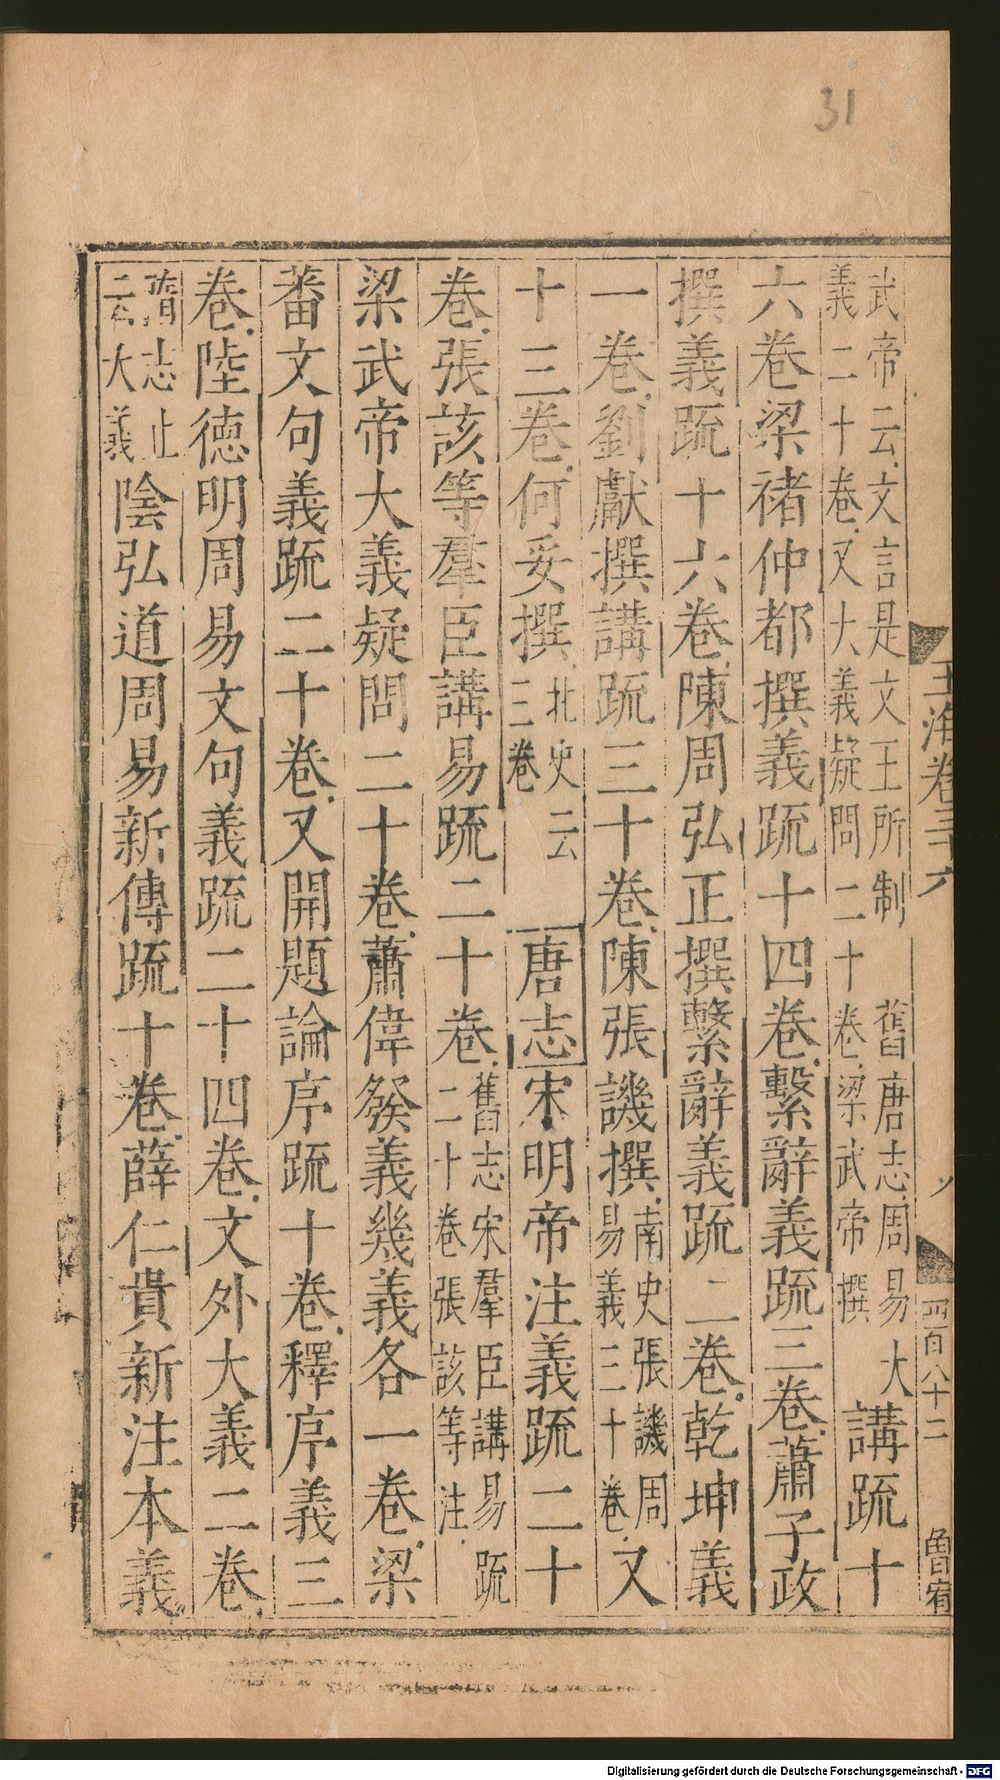 31
武帝云文言是文王所制 舊唐志周易大
義二十卷又大義疑問二十卷梁武帝撰 講疏十
六卷梁褚仲都撰義疏十四卷繫辭義疏三卷蕭子政
撰義疏十六卷陳周弘正撰繫辭義疏二卷乾坤義
一卷劉瓛撰講疏三十卷陳張譏撰南史張譏周
易義三十卷又
十三卷何妥撰北史云
三卷 唐志宋明帝注義疏二十
卷張該等羣臣講易疏二十卷舊志宋羣臣講易疏
二十卷張該等注
梁武帝大義疑問二十卷蕭偉發義幾義各一卷梁
蕃文句義疏二十卷又開題論序疏十卷釋序義三
卷陸德明周易文句義疏二十四卷文外大義二卷
隋志止
云大義 陰弘道周易新傳疏十卷薛仁貴新注本義
玉海卷三十六
四百八十二
Digitalisierung gefördert durch die Deutsche Forschungsgemeinschaft - DFG